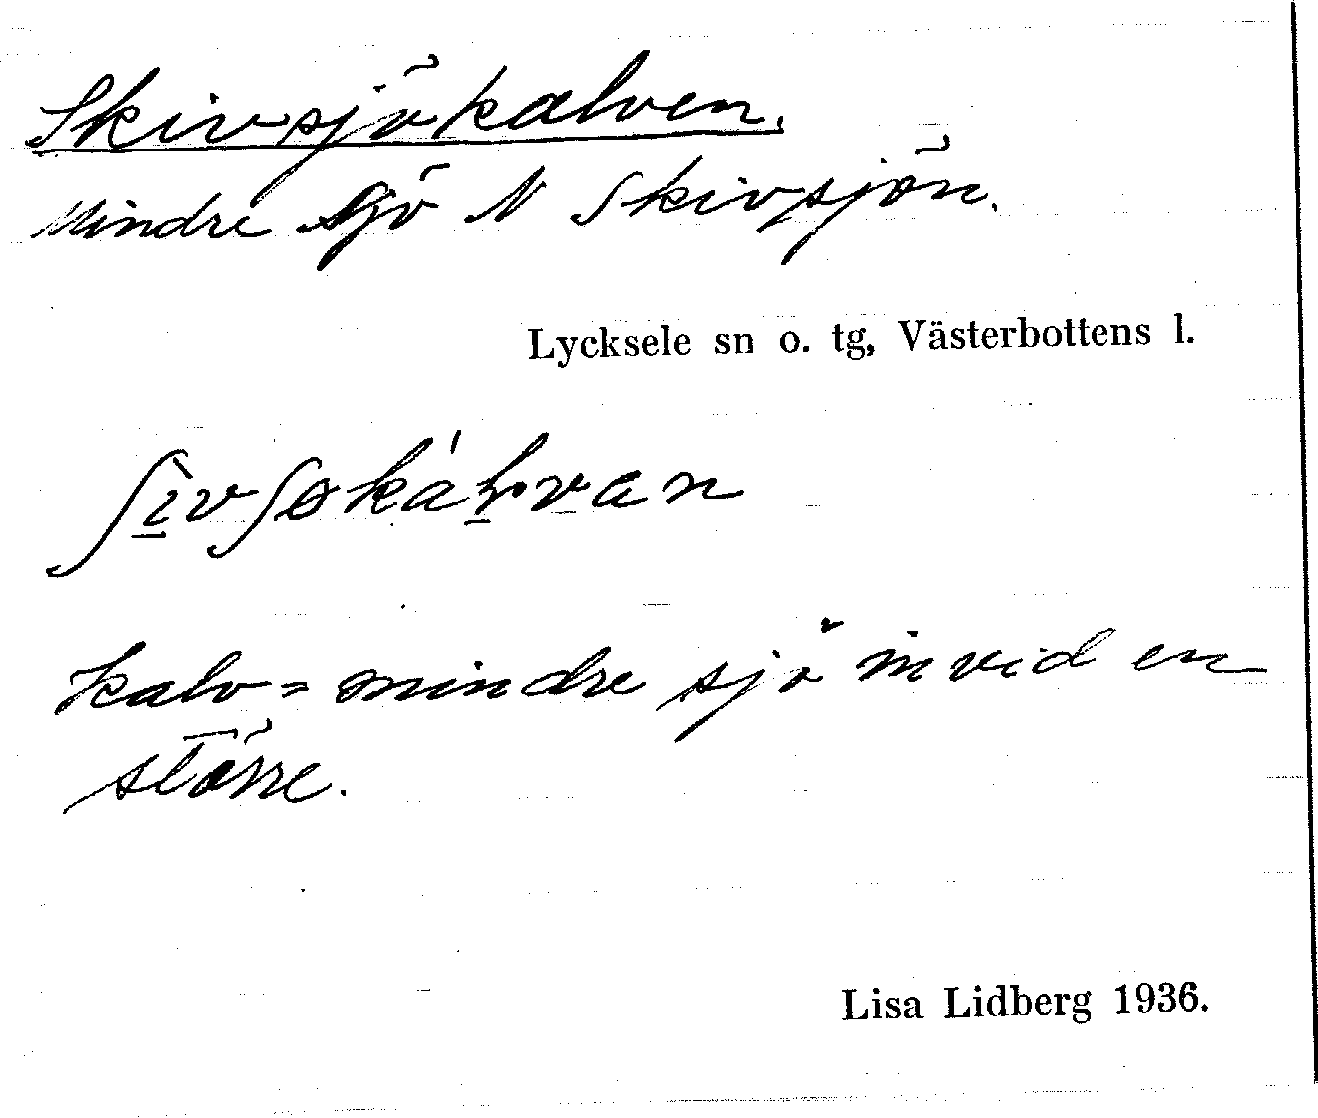 Skivsjökalven.
Mindre sjö N Skivsjön.
Lycksele sn o. tg, Västerbottens l.
kalv = mindre sjö invid en
större.
Lisa Lidberg 1936.